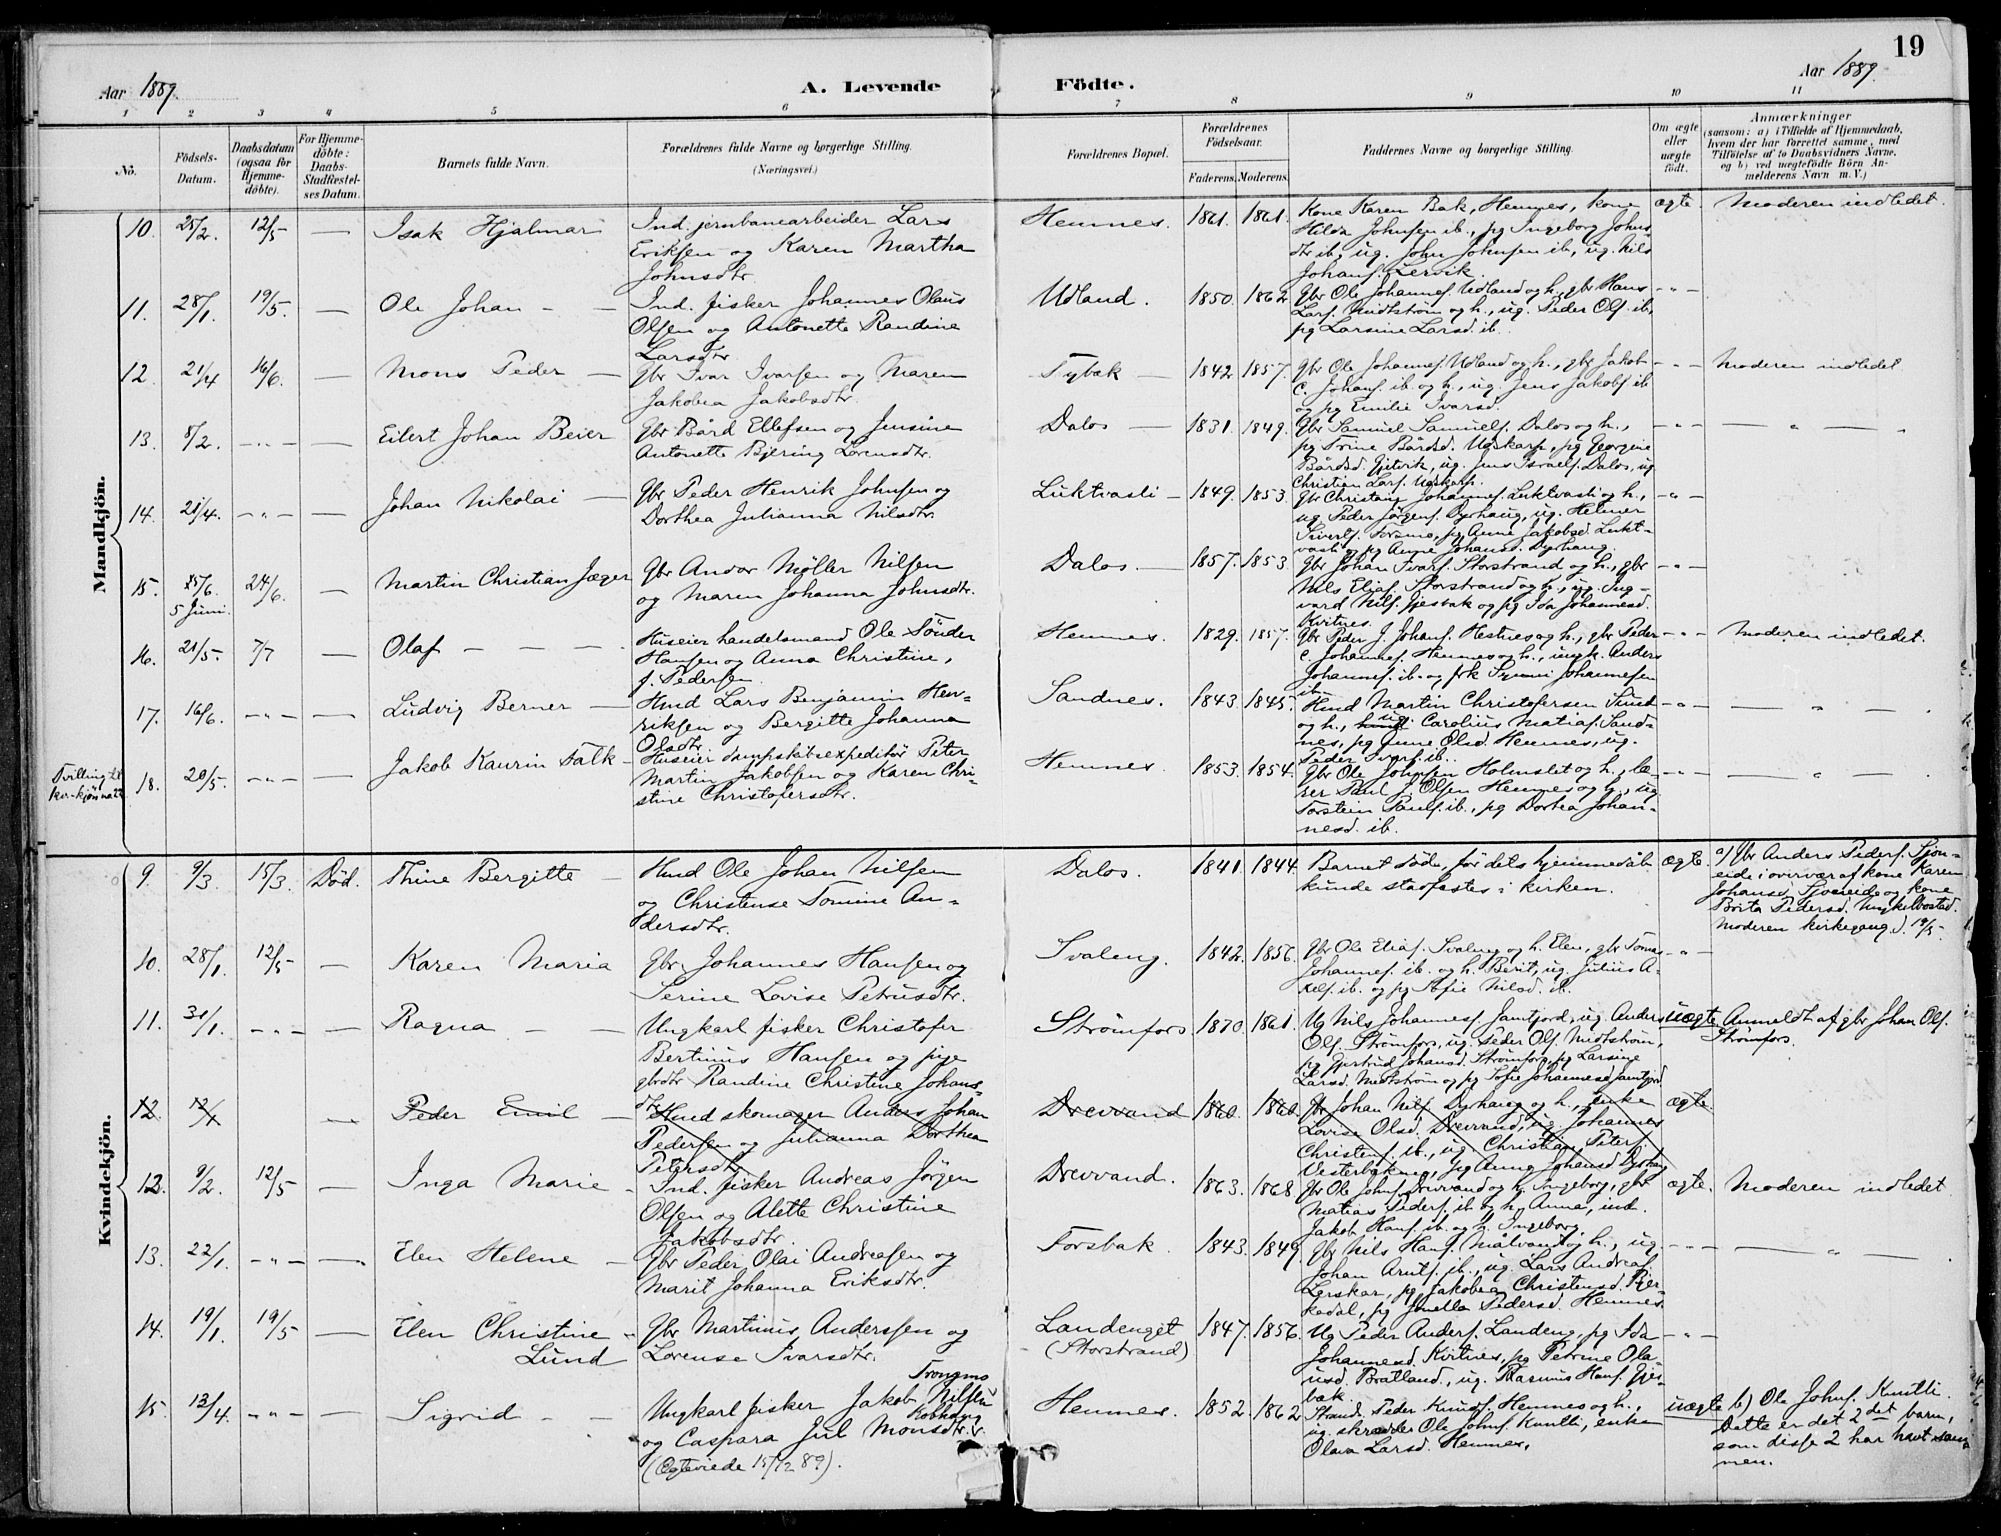 19
Aar 1889.
A. Levende
Födte.
Aar 1889.
1 2 3 4 5 6 7 8 9 10 11
No.
Födsels-Datum.
Daabsdatum (ogsaa for Hjemme-döbte).
For Hjemme-döbte: Daabs-Stadfæstel-ses Datum.
Barnets fulde Navn.
Forældrenes fulde Navne og borgerlige Stilling.
(Næringsvei.)
Forældrenes Bopæl.
Forældrenes Födselsaar.
Faderens. Moderens.
Faddernes Navne og borgerlige Stilling.
Om ægte eller uægte födt.
Anmærkninger
(saasom: a) i Tilfælde af Hjemmedaab, hvem der har forrettet samme, med Tilföielse af to Daabsvidners Navne, og b) ved uægtefödte Börn Anmelderens Navn m. V.)
Mandkjön.
10. 25/2. 12/5 — Isak Hjalmar
Ind. jernbanearbeider Lars
Eriksen og Karen Martha
Johnsdtr.
Hemnes. 1861. 1861.
Kone Karen Bak, Hemnes, kone
Hilda Johnsen ib., pg Ingeborg Johns-
dtr ib., ug. John Johnsen ib., ug. Nils
Johans. Lervik.
ægte. Moderen indledet.
11. 28/1. 19/5. — Ole Johan — —
Ind. fisker Johannes Olaus
Olsen og Antonette Randine
Larsdtr.
Udland. 1850. 1862.
Gbr Ole Johannes. Udland og h., gbr Hans
Lars. Midtstrøm og h., ug. Peder Ols. ib.,
pg Larsine Larsd. ib.
— " —
12. 21/4 16/6. — Mons Peder —
Gbr Ivar Ivarsen og Maren
Jakobea Jakobsdtr.
Tybæk — 1842 1857.
Gbr Ole Johannes. Udland og h., gbr Jakob
C. Johans. ib. og h., ug. Jens Jakobs. ib
og pg Emilie Ivarsd.
— " — Moderen indledet
13. 5/2. — " — — Eilert Johan Beier
Gbr Bård Ellefsen og Jensine
Antonette Bjering Lorensdtr.
Dalos — 1831. 1849.
Gbr Samuel Samuels. Dalos og h.,
pg Trine Bårdsd. Ugskarp, pg Georgine
Bårdsd. Gjitvik, ug. Jens Israels. Dalos, ug
Christian Lars. Ugskarp.
— " — — " — "
14. 21/4. — " — — Johan Nikolai —
Gbr Peder Henrik Johnsen og
Dorthea Julianna Nilsdtr.
Luktvasli — 1849. 1853.
Gbr Christian Johannes. Luktvasli og h.,
ug Peder Jørgens. Dyrhaug, ug. Helmer
Siverts. Forsmo, pg Anne Jakobsd. Lukt-
vasli og pg Anne Johansd. Dyrhaug.
— " —
15. 15/6. 5 Juni. 24/6. — Martin Christian Jæger
Gbr Andor Møller Nilsen
og Maren Johanna Johnsdtr.
Dalos. — 1857. 1853
Gbr Johan Ivars. Storstrand og h., gbr
Nils Elias. Storstrand og h., ug. Ing-
vard Nils. Gjesbak og pg Ida Johannesd.
Kvitnes.
— " —
16. 21/5. 7/7 — Olaf — — —
Huseier handelsmand Ole Sönder
Hansen og Anna Christine,
f. Pedersen.
Hemnes. 1829. 1857.
Gbr Peder J. Johans. Hestnes og h., gbr Peder
C. Johannes. Hemnes og h., ungk. Anders
Johannes. ib. og frk Synni Johannesen
ib.
— " — Moderen indledet.
17. 16/6. — " — — Ludvig Berner —
Hmd Lars Benjamin Hen-
riksen og Bergitte Johanna
Olsdtr.
Sandnes. 1843. 1845.
Hmd Martin Christofersen Sund
og h., hmd ug. Carolius Matias. Sand-
nes, pg Anne Olsd. Hemnes, ug.
Peder Ivars. ib.
— " — — " —
Tvilling til kv-kjön no 22
18. 20/5. — " — — Jakob Kaurin Falk —
Huseier dampskibsexpeditör Peter
Martin Jakobsen og Karen Chri-
stine Christofersdtr.
Hemnes. 1853. 1854.
Gbr Ole Johnsen Holmslet og h., læ-
rer Paul J. Olsen Hemnes og h., ug
Torstein Pauls. ib., pg Dorthea Johan-
nesd. ib.
— " — — " —
Kvindekjön.
9. 9/3 15/3. Död. Thine Bergitte —
Hmd Ole Johan Nilsen
og Christense Tomine An-
dersdtr.
Dalos. 1841. 1844.
Barnet døde, før dets hjemmedåb
kunde stadfæstes i kirken.
ægte.
a) Gbr Anders Peders. Sjon-
eide i overvær af kone Karen
Johansd. Sjoneide og kone
Berta Pedersd. Mykelbostad.
Moderen kirkegang d. 19/5.
10. 28/1. 12/5 — Karen Maria
Gbr Johannes Hansen og
Serine Lovise Petrusdtr.
Svaleng. 1842. 1856.
Gbr Ole Elias. Svaleng og h. Elen, gbr Tomas
Johannes. ib. og h. Berit, ug. Julius A-
xels. ib. og pg Sofie Nilsd. ib.
— " —
11. 31/1. — " — — Ragna — —
Ungkarl fisker Christofer
Bertinus Hansen og pige
gbrdtr Randine Christine Johans-
dtr.
Strømfors 1870. 1861.
Ug Nils Johannes. Jamtjord, ug. Anders
Ols. Strømfors, ug. Peder Ols. Midtstrøm,
pg Gjertrud Johansd. Strømfors, pg Larsine
Larsd. Midtstrøm og pg Sofie Johannesd. Jamtjord.
uægte Anmeldt af gbr Johan Ols.
Strømfors.
12 12/4 — Peder Emil —
Hmd skomager Anders Johan
Pedersen og Julianna Dorthea
Petersdtr.
Drevvand 1860. 1860.
Gbr Johan Nils. Dyrhaug og h., enke
Lovise Olsd. Drevvand, ug. Johannes
Christens. ib., ug. Christian Peters.
Vesterbakeng, pg Anna Johansd. Dyrhaug
ægte.
12. 9/2. 12/5 — Inga Marie —
Ind. fisker Andreas Jørgen
Olsen og Alette Christine
Jakobsdtr.
Drevvand. 1863. 1868
Gbr Ole Johns. Drevvand og h. Ingeborg, gbr
Matias Peders. ib. og h. Anna, ind.
Jakob Hans. ib. og h. Ingeborg.
ægte. Moderen indledet
13. 22/1. — " — — Elen Helene —
Gbr Peder Olai Andreasen og
Marit Johanna Eriksdtr.
Forsbak. 1843. 1849.
Gbr Nils Hans. Målvand og h., ug.
Johan Arnts. ib., ug. Lars Andreas.
Lerskar, pg Jakobea Christensd. Bjer-
kadal, pg Jonetta Pedersd. Hemnes.
— " — — " —
14. 19/1. 19/5 — Elen Christine —
Lund
Gbr Martinus Andersen og
Lorense Ivarsdtr.
Landenget
(Storstrand)
1847. 1856.
Ug Peder Anders. Landeng, pg Ida
Johannesd. Kvitnes, pg Petrine Ola-
usd. Bratland, ug. Rasmus Hans. Gjes-
bak.
— " —
15. 13/4. — " — — Sigrid — —
Trongmo
Ungkarl fisker Jakob Nilsen
og Caspara Jul Monsdtr.
(Ægteviede 15/12 89).
Hemnes. 1852. 1862
Strands. Peder Knuds. Hemnes og h.,
ug. skrædder Ole Johns. Kuntli, enke
Olava Larsd. Hemnes.
uægte b) Ole Johns. Kuntli.
Dette er det 2det barn,
som disse 2 har havt sam-
men.